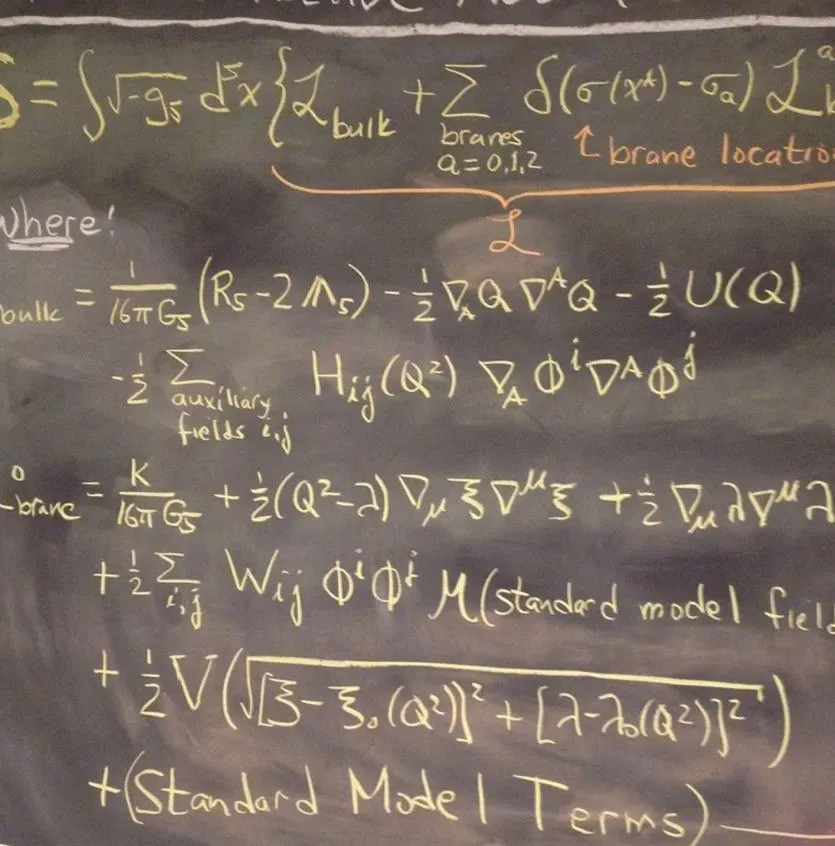 S = ∫√-g₅ d⁵x { ℒ_bulk + Σ_{branes a=0,1,2} δ(σ(x^A) - σ_a) ℒ
↑ brane location
ℒ
Where!
bulk = 1/(16πG₅) (R₅ - 2Λ₅) - ½ ∇_A Q ∇^A Q - ½ U(Q)
- ½ Σ_{auxiliary fields i,j} H_ij(Q²) ∇_A Φ^i ∇^A Φ^j
0 brane = K/(16πG₅) + ½(Q² - λ) ∇_μ ξ ∇^μ ξ + ½ ∇_μ λ ∇^μ λ
+ ½ Σ_{i,j} W_ij Φ^i Φ^j M(standard model field
+ ½ V(√([ξ - ξ₀(Q²)]² + [λ - λ₀(Q²)]²))
+ (Standard Model Terms)